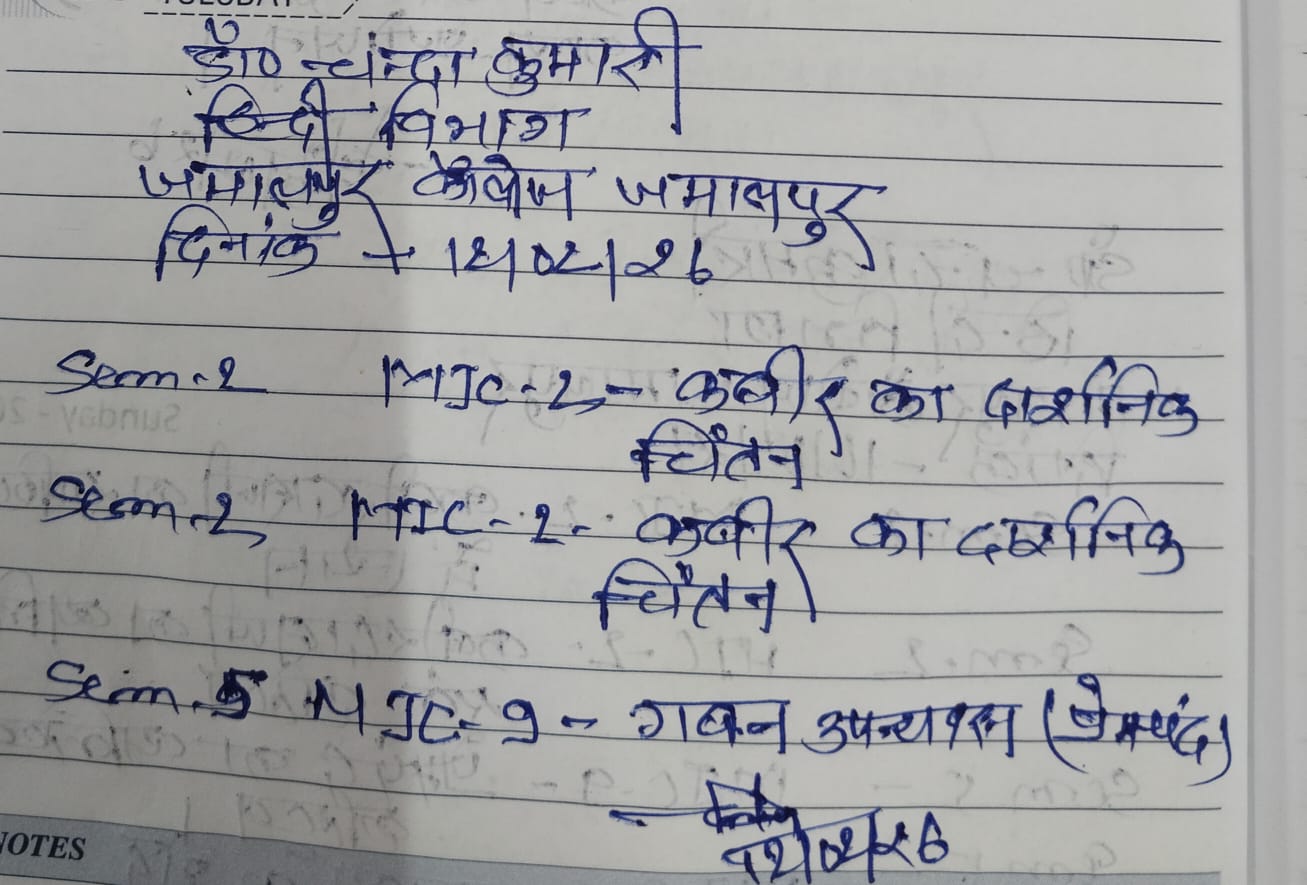 डॉ० चन्दा कुमारी
हिन्दी विभाग
जमालपुर कॉलेज जमालपुर
दिनांक - 12/02/26
Sem.2 MJC-2- कबीर का दार्शनिक
चिंतन
Sem.2 MIC-2- कबीर का दार्शनिक
चिंतन
Sem.5 MJC-9- गबन उपन्यास (प्रेमचंद)
12/02/26
NOTES